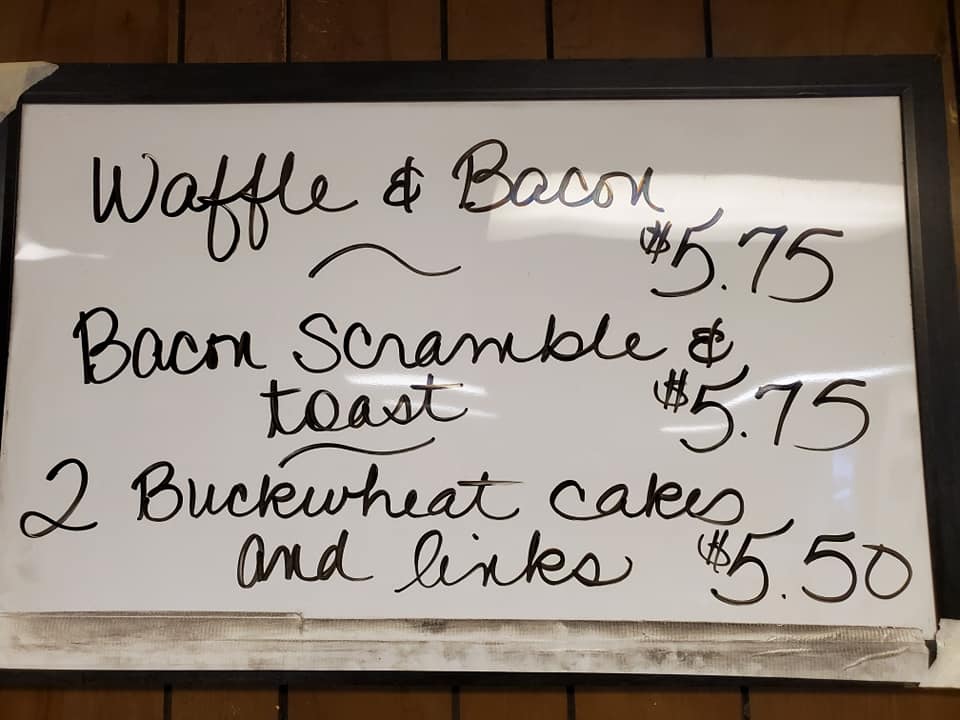 Waffle & Bacon
$5.75
Bacon Scramble &
toast $5.75
2 Buckwheat cakes
and links $5.50